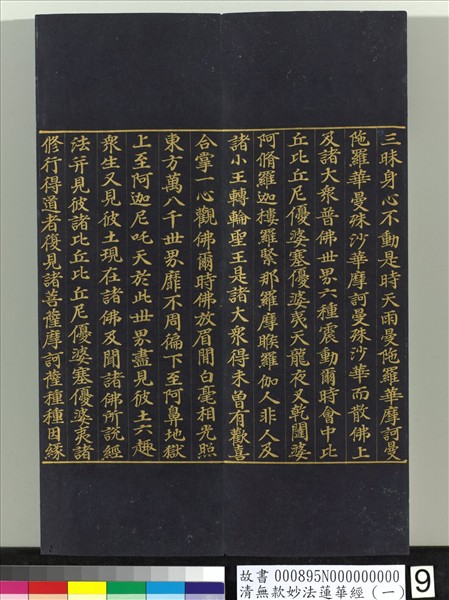 三昧身心不動是時天雨曼陁羅華摩訶曼
陁羅華曼殊沙華摩訶曼殊沙華而散佛上
及諸大衆普佛世界六種震動爾時會中比
丘比丘尼優婆塞優婆夷天龍夜叉乾闥婆
阿脩羅迦樓羅緊那羅摩睺羅伽人非人及
諸小王轉輪聖王是諸大衆得未曾有歡喜
合掌一心觀佛爾時佛放眉間白毫相光照
東方萬八千世界靡不周徧下至阿鼻地獄
上至阿迦尼吒天於此世界盡見彼土六趣
衆生又見彼土現在諸佛及聞諸佛所說經
法并見彼諸比丘比丘尼優婆塞優婆夷諸
修行得道者復見諸菩薩摩訶薩種種因緣
故書 000895N000000000
清無款妙法蓮華經 (一)
9